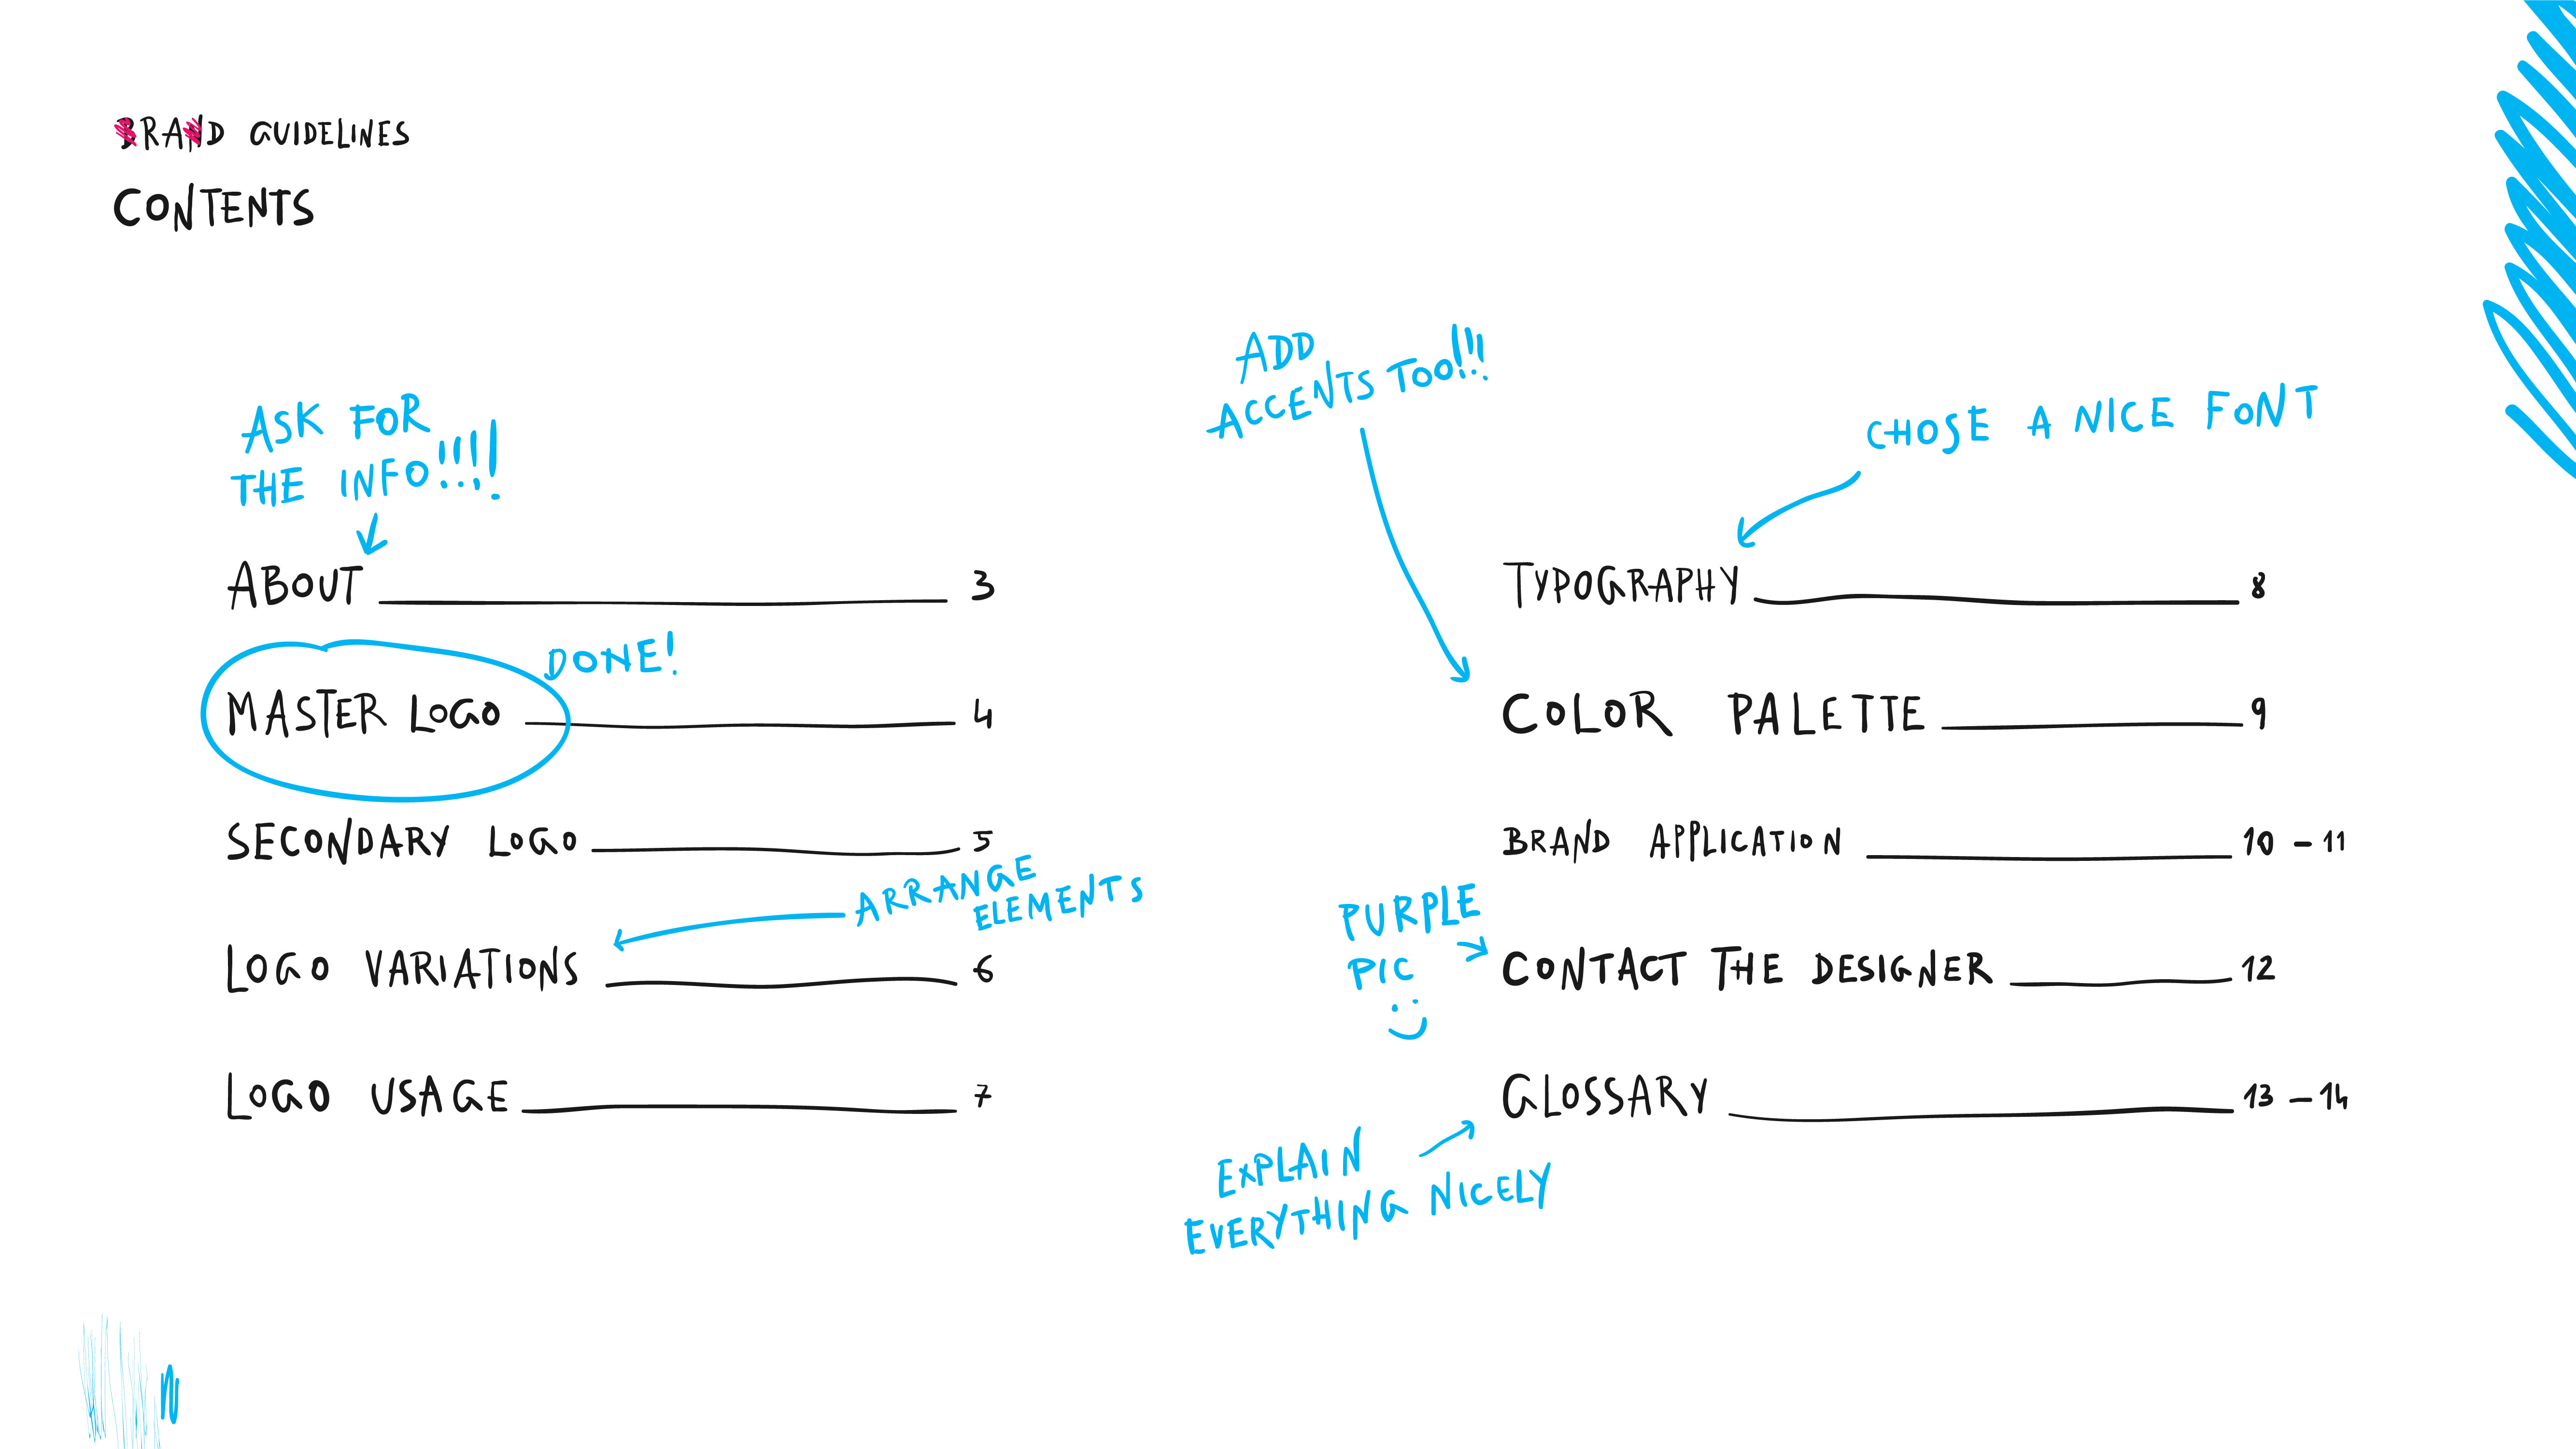 BRAND GUIDELINES
CONTENTS
ASK FOR
THE INFO!!!!
ABOUT 3
DONE!
MASTER LOGO 4
SECONDARY LOGO 5
ARRANGE
ELEMENTS
LOGO VARIATIONS 6
LOGO USAGE 7
ADD
ACCENTS TOO!!!
CHOSE A NICE FONT
TYPOGRAPHY 8
COLOR PALETTE 9
BRAND APPLICATION 10 – 11
PURPLE
PIC
:)
CONTACT THE DESIGNER 12
GLOSSARY 13 – 14
EXPLAIN
EVERYTHING NICELY